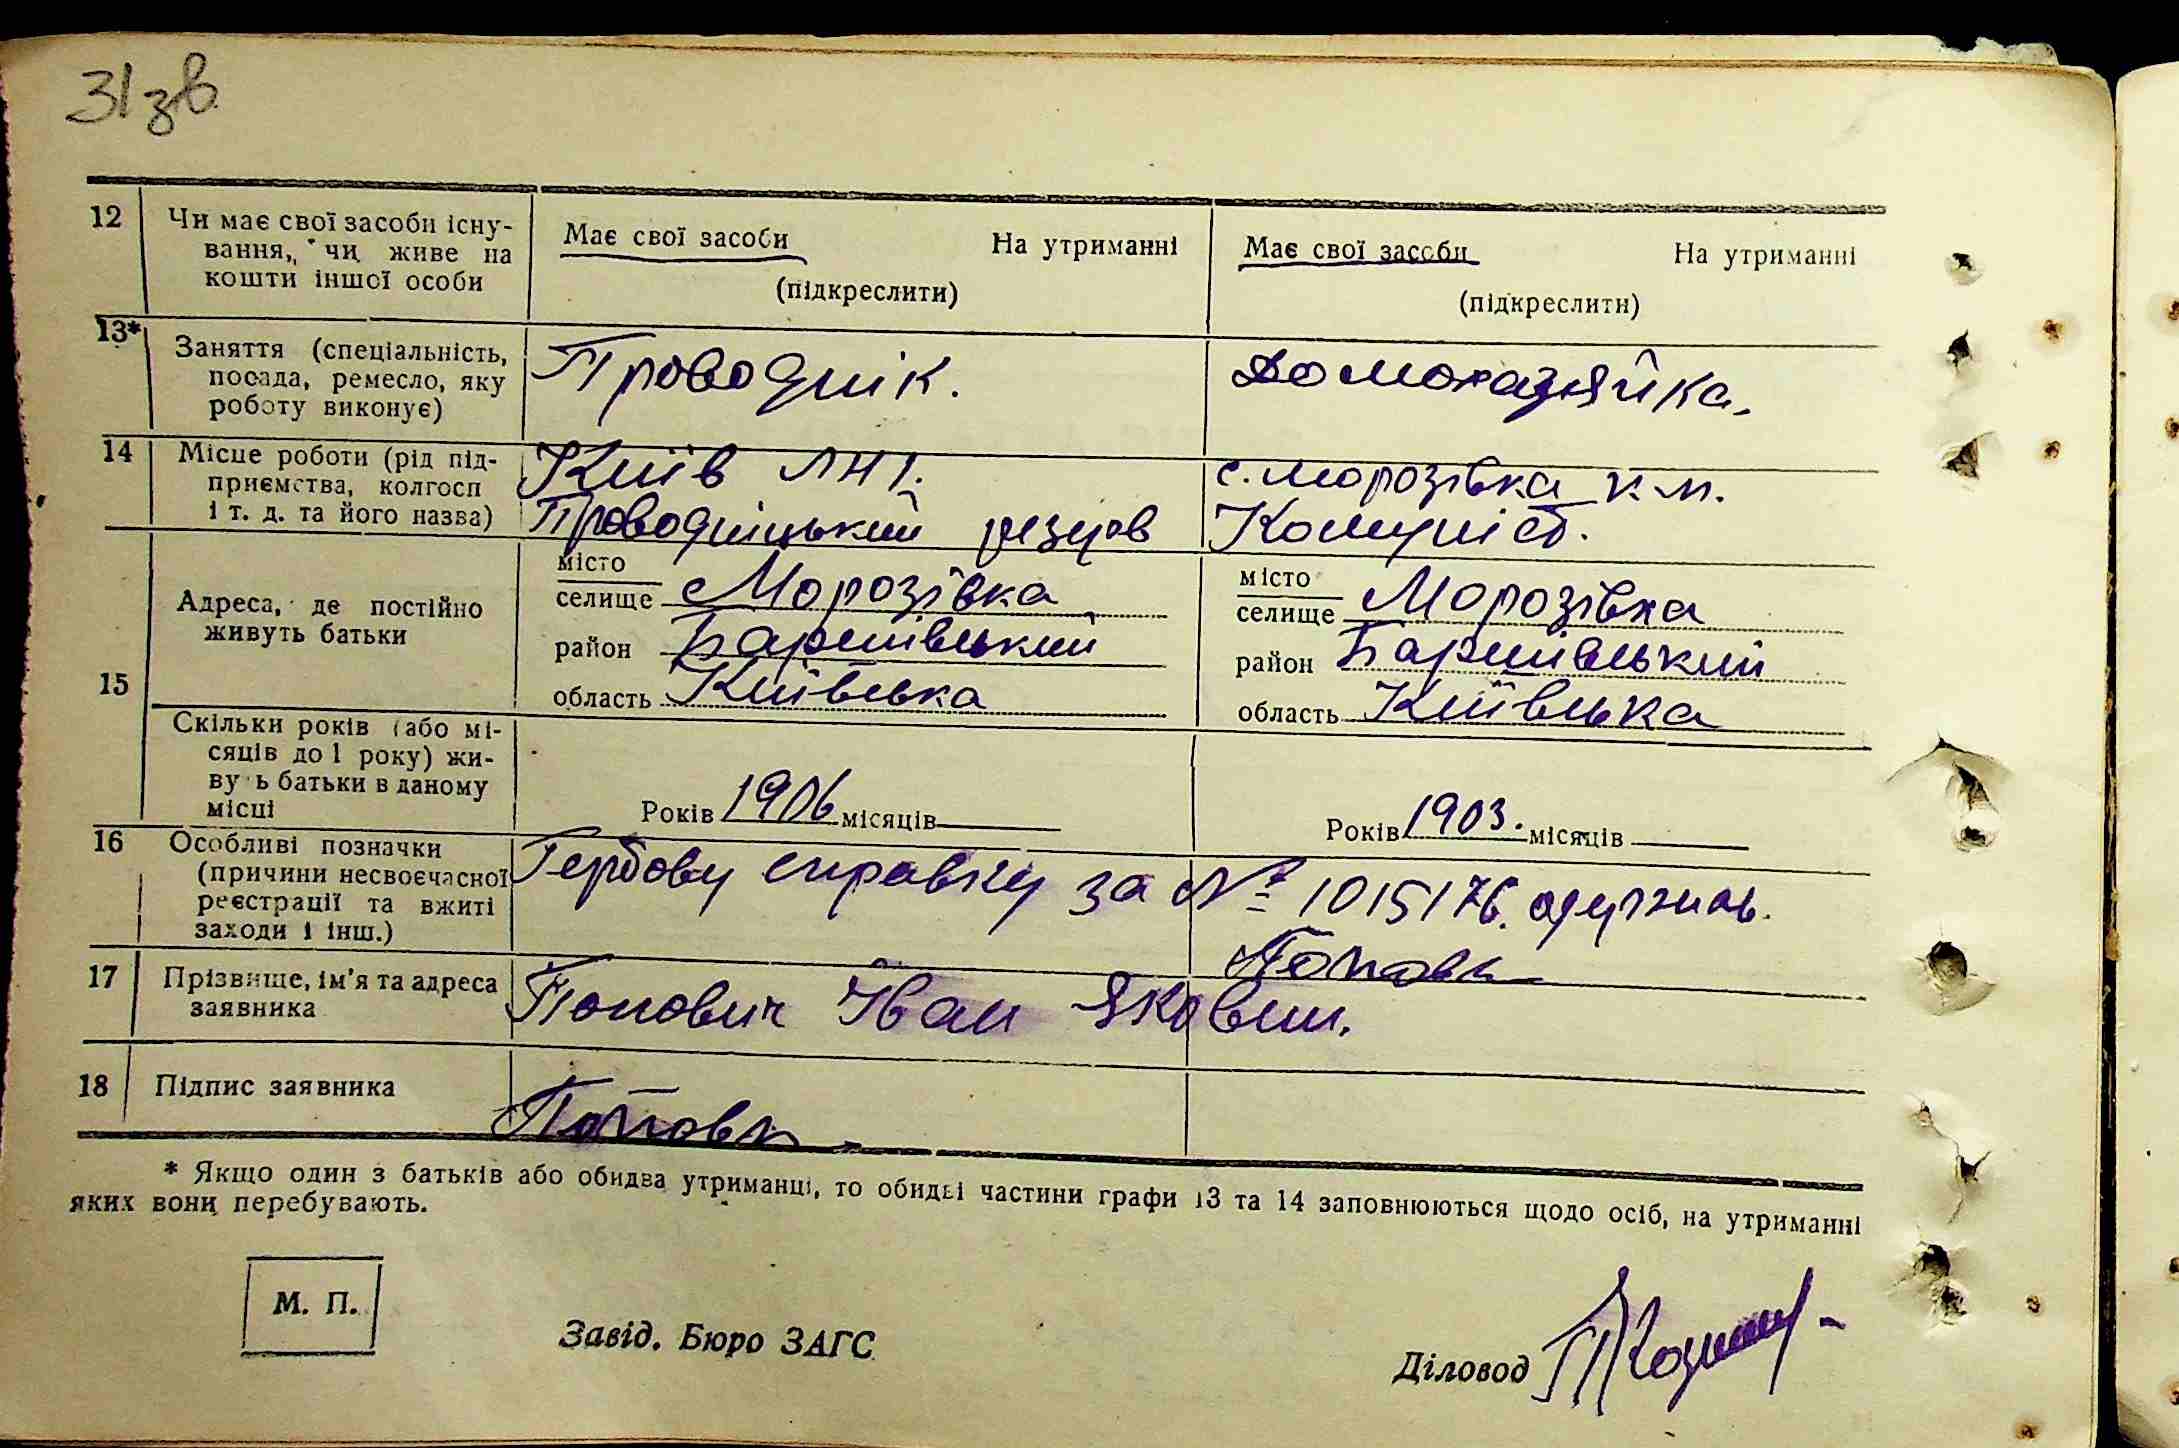 31зв
12 Чи має свої засоби існу-
вання, чи живе на
кошти іншої особи
Має свої засоби На утриманні
(підкреслити)
Має свої засоби На утриманні
(підкреслити)
13* Заняття (спеціальність,
посада, ремесло, яку
роботу виконує)
Проводнік.
Домохазяйка.
14 Місце роботи (рід під-
приємства, колгосп
і т. д. та його назва)
Київ ЛНІ.
Проводніцький резерв
с. Морозівка к-п.
Комуніст.
15 Адреса, де постійно
живуть батьки
місто
селище Морозівка
район Баришівський
область Київська
місто
селище Морозівка
район Баришівський
область Київська
Скільки років (або мі-
сяців до 1 року) жи-
ву ь батьки в даному
місці
Років 1906 місяців
Років 1903. місяців
16 Особливі позначки
(причини несвоєчасної
реєстрації та вжиті
заходи і інш.)
Гербову справку за № 1015176.
17 Прізвище, ім'я та адреса
заявника
Попович Іван Якович.
18 Підпис заявника
* Якщо один з батьків або обидва утриманці, то обидві частини графи 13 та 14 заповнюються щодо осіб, на утриманні
яких вони перебувають.
М. П.
Завід. Бюро ЗАГС
Діловод